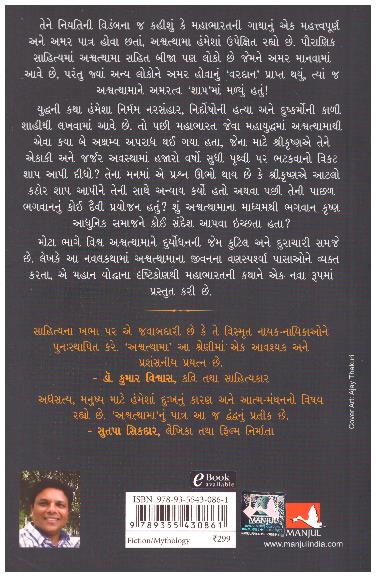 તેને નિયતિની વિડંબના જ કહીશું કે મહાભારતની ગાથાનું એક મહત્ત્વપૂર્ણ
અને અમર પાત્ર હોવા છતાં, અશ્વત્થામા હંમેશાં ઉપેક્ષિત રહ્યો છે. પૌરાણિક
સાહિત્યમાં અશ્વત્થામા સહિત બીજા પણ લોકો છે જેમને અમર માનવામાં
આવે છે, પરંતુ જ્યાં અન્ય લોકોને અમર હોવાનું 'વરદાન' પ્રાપ્ત થયું, ત્યાં જ
અશ્વત્થામાને અમરત્વ 'શાપ'માં મળ્યું હતું!
યુદ્ધની કથા હંમેશા નિર્મમ નરસંહાર, નિર્દોષોની હત્યા અને દુષ્કર્મોની કાળી
શાહીથી લખવામાં આવે છે. તો પછી મહાભારત જેવા મહાયુદ્ધમાં અશ્વત્થામાથી
એવા કયા બે અક્ષમ્ય અપરાધ થઈ ગયા હતા, જેના માટે શ્રીકૃષ્ણએ તેને
એકાકી અને જર્જર અવસ્થામાં હજારો વર્ષો સુધી પૃથ્વી પર ભટકવાનો વિકટ
શાપ આપી દીધો? તેના મનમાં એ પ્રશ્ન ઊભો થાય છે કે શ્રીકૃષ્ણએ આટલો
કઠોર શાપ આપીને તેની સાથે અન્યાય કર્યો હતો અથવા પછી તેની પાછળ
ભગવાનનું કોઈ દૈવી પ્રયોજન હતું? શું અશ્વત્થામાના માધ્યમથી ભગવાન કૃષ્ણ
આધુનિક સમાજને કોઈ સંદેશ આપવા ઇચ્છતા હતા?
મોટા ભાગે વિશ્વ અશ્વત્થામાને દુર્યોધનની જેમ કુટિલ અને દુરાચારી સમજે
છે. લેખકે આ નવલકથામાં અશ્વત્થામાના જીવનના વણસ્પર્શ્યા પાસાઓને વ્યક્ત
કરતા, એ મહાન યોદ્ધાના દૃષ્ટિકોણથી મહાભારતની કથાને એક નવા રૂપમાં
પ્રસ્તુત કરી છે.
સાહિત્યના ખભા પર એ જવાબદારી છે કે તે વિસ્મૃત નાયક-નાયિકાઓને
પુનઃસ્થાપિત કરે. 'અશ્વત્થામા' આ શ્રેણીમાં એક આવશ્યક અને
પ્રશંસનીય પ્રયત્ન છે.
- ડૉ. કુમાર વિશ્વાસ, કવિ તથા સાહિત્યકાર
અર્ધસત્ય, મનુષ્ય માટે હંમેશાં દુઃખનું કારણ અને આત્મ-મંથનનો વિષય
રહ્યો છે. 'અશ્વત્થામા'નું પાત્ર આ જ દ્વંદ્વનું પ્રતીક છે.
- સુતપા સિકદાર, લેખિકા તથા ફિલ્મ નિર્માતા
Cover Art: Ajay Thakuri
eBook
available
ISBN 978-93-5543-086-1
9 789355 430861
Fiction/Mythology ₹299
MANJUL
www.manjulindia.com